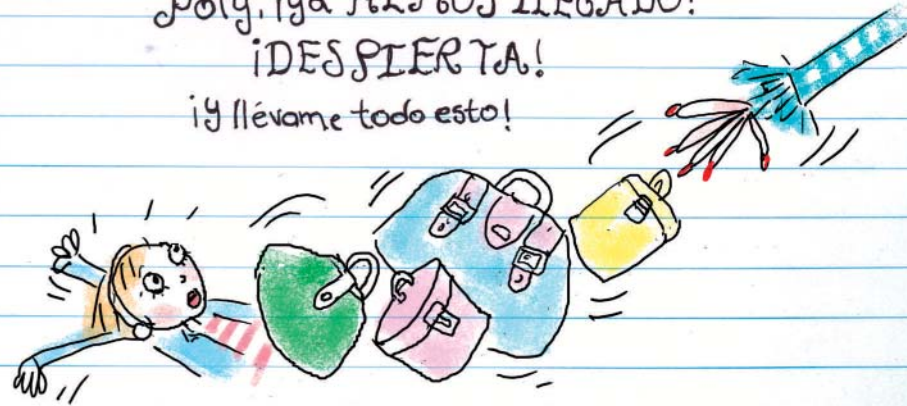 Poly, ¡ya HEMOS LLEGADO!
¡DESPIERTA!
¡y llévame todo esto!